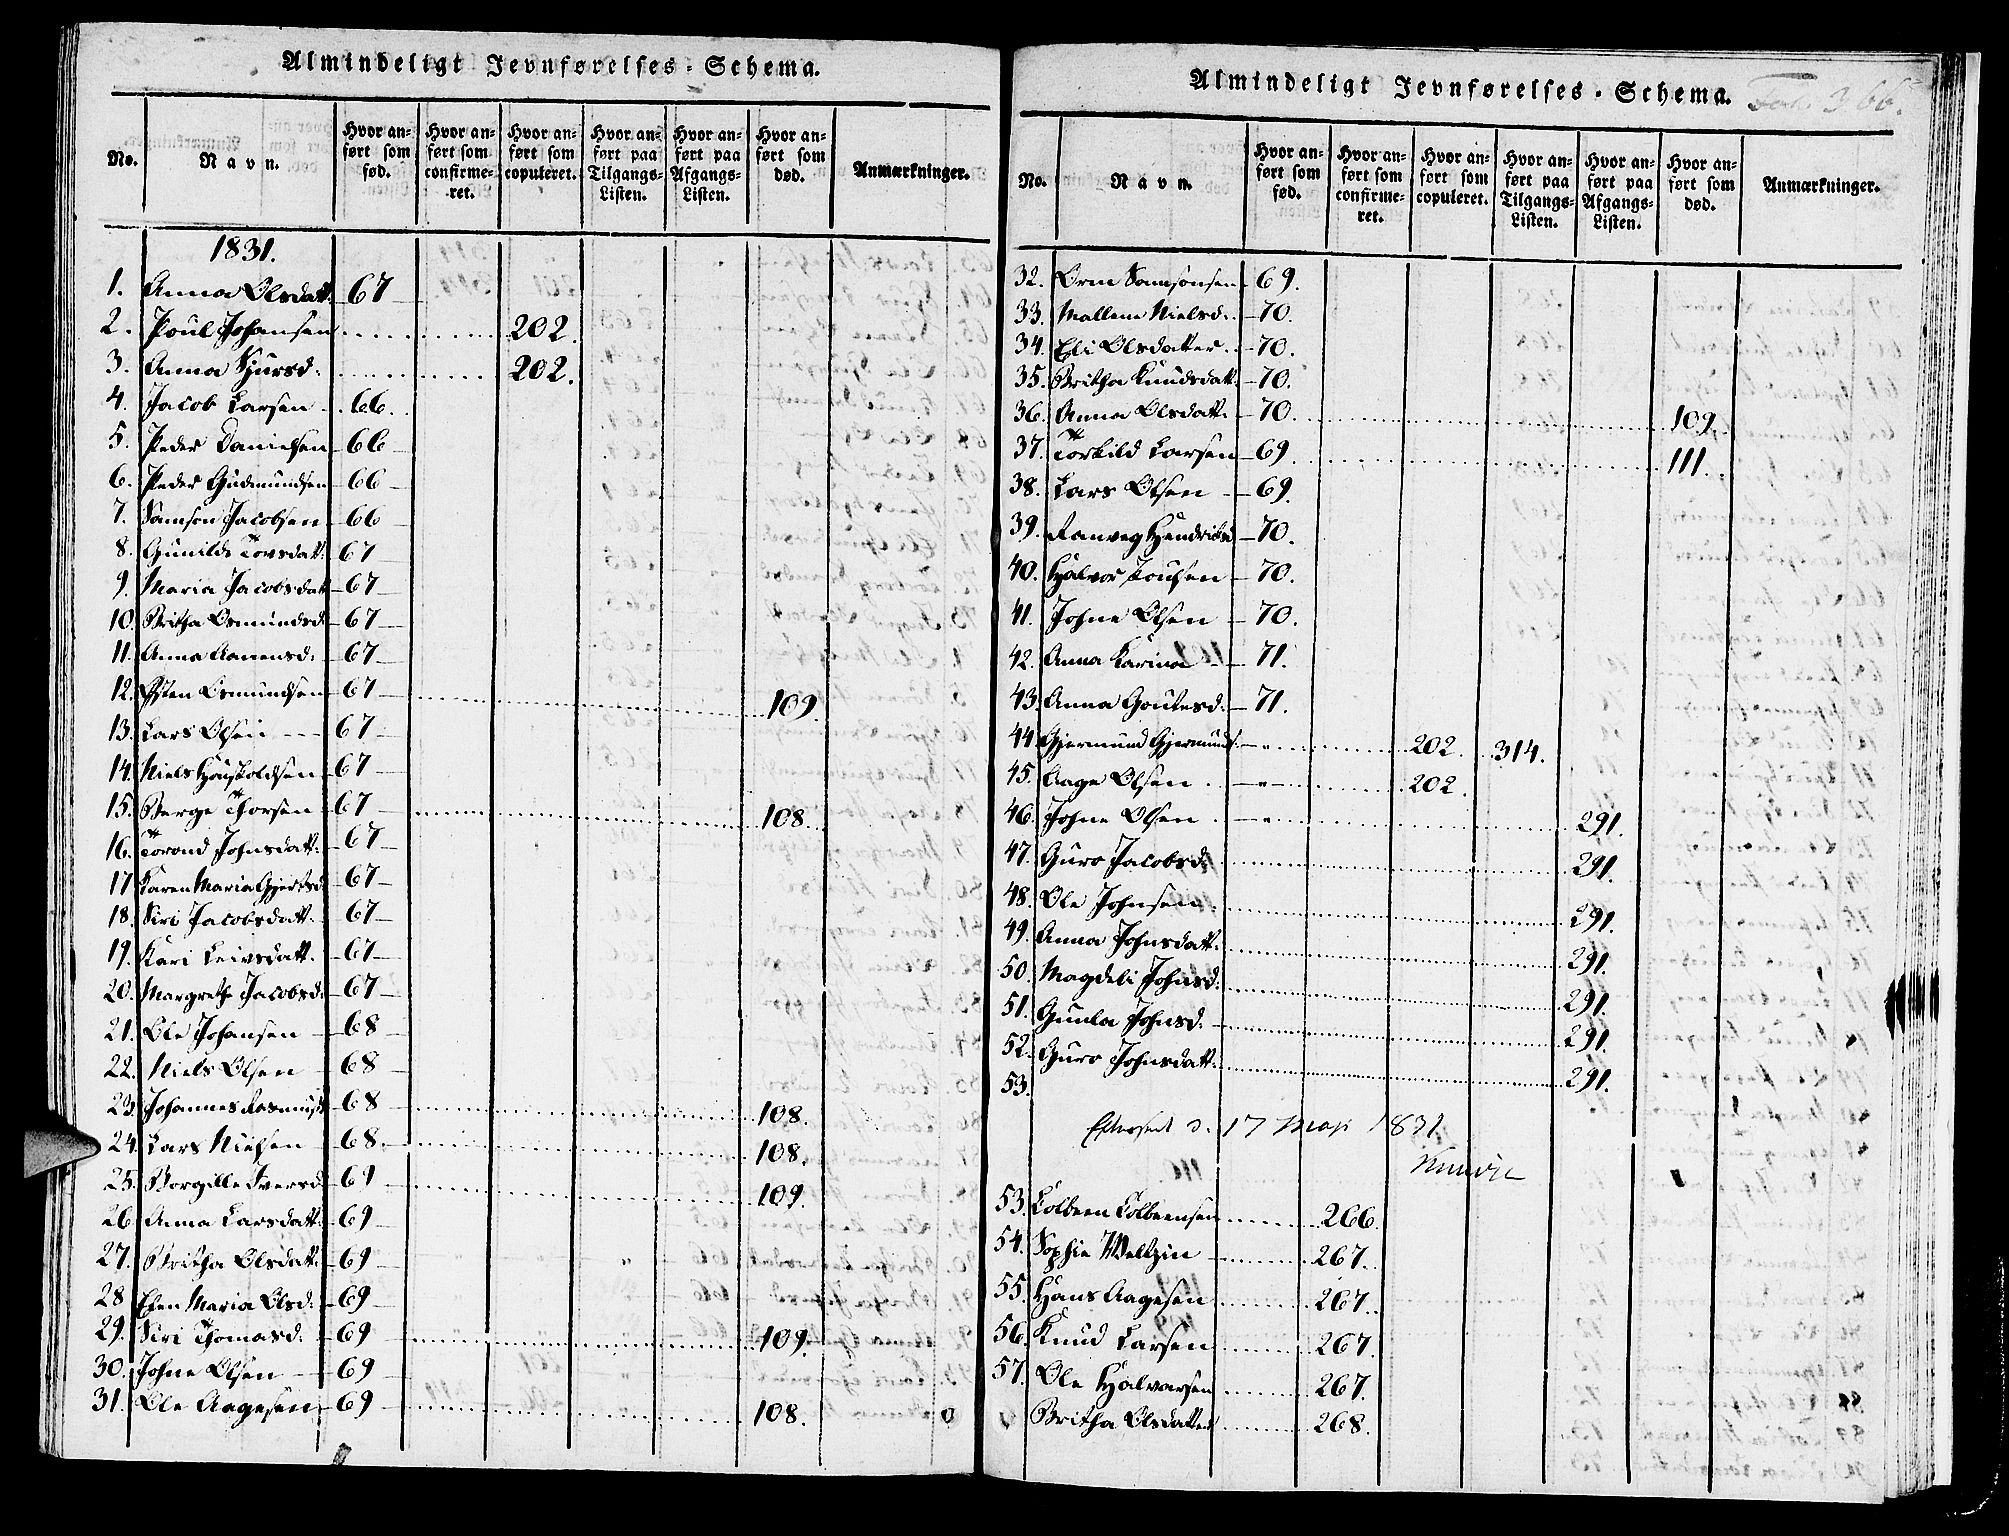 Almindeligt Jevnførelses-Schema.
No. Navn. Hvor anført som fød. Hvor anført som confirmeret. Hvor anført som copuleret. Hvor anført paa Tilgangs-Listen. Hvor anført paa Afgangs-Listen. Hvor anført som død. Anmærkninger.
1831.
1. Anna Olsdatt. 67
2. Poul Johansen 202.
3. Anna Sjursd. 202.
4. Jacob Larsen 66.
5. Peder Danielsen 66
6. Peder Gudmundsen 66
7. Samson Jacobsen 66
8. Gunilde Tovsdatt. 67
9. Maria Jacobsdatt 67
10. Britha Osmundsd. 67
11. Anna Aanensd. 67
12. Østen Osmundsen 67 109.
13. Lars Olsen 67
14. Niels Houskoldsen 67
15. Berge Thorsen 67 108.
16. Torond Johnsdatt. 67
17. Karen Maria Gjertsd. 67
18. Siri Jacobsdatt. 67
19. Kari Leivsdatt. 67
20. Margrethe Jacobsd. 67
21. Ole Johansen 68
22. Niels Olsen 68
23. Johannes Rasmuss 68 108.
24. Lars Nielsen 68. 108.
25. Borgille Iversd. 69 109.
26. Anna Larsdatt. 69
27. Britha Olsdatt. 69
28 Elen Maria Olsd. 69
29. Siri Thomasd. 69 109.
30. Johne Olsen 69
31. Ole Aagesen 69 108.
Almindeligt Jevnførelses-Schema. Fol. 366.
No. Navn. Hvor anført som fød. Hvor anført som confirmeret. Hvor anført som copuleret. Hvor anført paa Tilgangs-Listen. Hvor anført paa Afgangs-Listen. Hvor anført som død. Anmærkninger.
32. Orm Samsonsen 69.
33. Mallene Nielsd. 70.
34. Eli Olsdatter 70.
35. Britha Knudsdatt. 70.
36. Anna Olsdatt. 70. 109.
37. Torkild Larsen 69. 111.
38. Lars Olsen 69.
39. Ranveg Hendriksd 70.
40. Halvor Toulsen 70.
41. Johne Olsen 70.
42. Anna Karina 71.
43. Anna Goutesd. 71.
44. Gjermund Gjermunds. 202. 314.
45. Aage Olsen 202.
46. Johne Olsen 291.
47. Guro Jacobsd. 291.
48. Ole Johnsen 291.
49. Anna Johnsdatt. 291.
50. Magdeli Johnsd. 291.
51. Gunla Johnsd. 291.
52. Guro Johnsdatt. 291.
53.
Efterseet d. 17 Maji 1831
53. Colbeen Colbeensen 266.
54. Sophie Weltzin 267.
55. Hans Aagesen 267.
56. Knud Larsen 267.
57. Ole Halvorsen 267.
Britha Olsdatter 268.